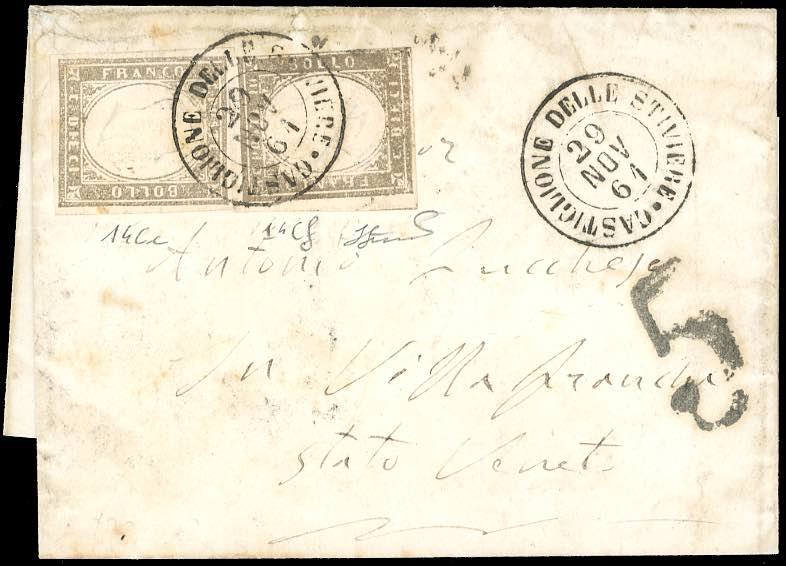 FRANCO
C. DIECI
BOLLO
BOLLO
C. DIECI
FRANCO
CASTIGLIONE DELLE STIVIERE
29
NOV
61
CASTIGLIONE DELLE STIVIERE
29
NOV
61
14Ce
14Cf
Antonio Lucchese
In Villafranca
Stato Veneto
5